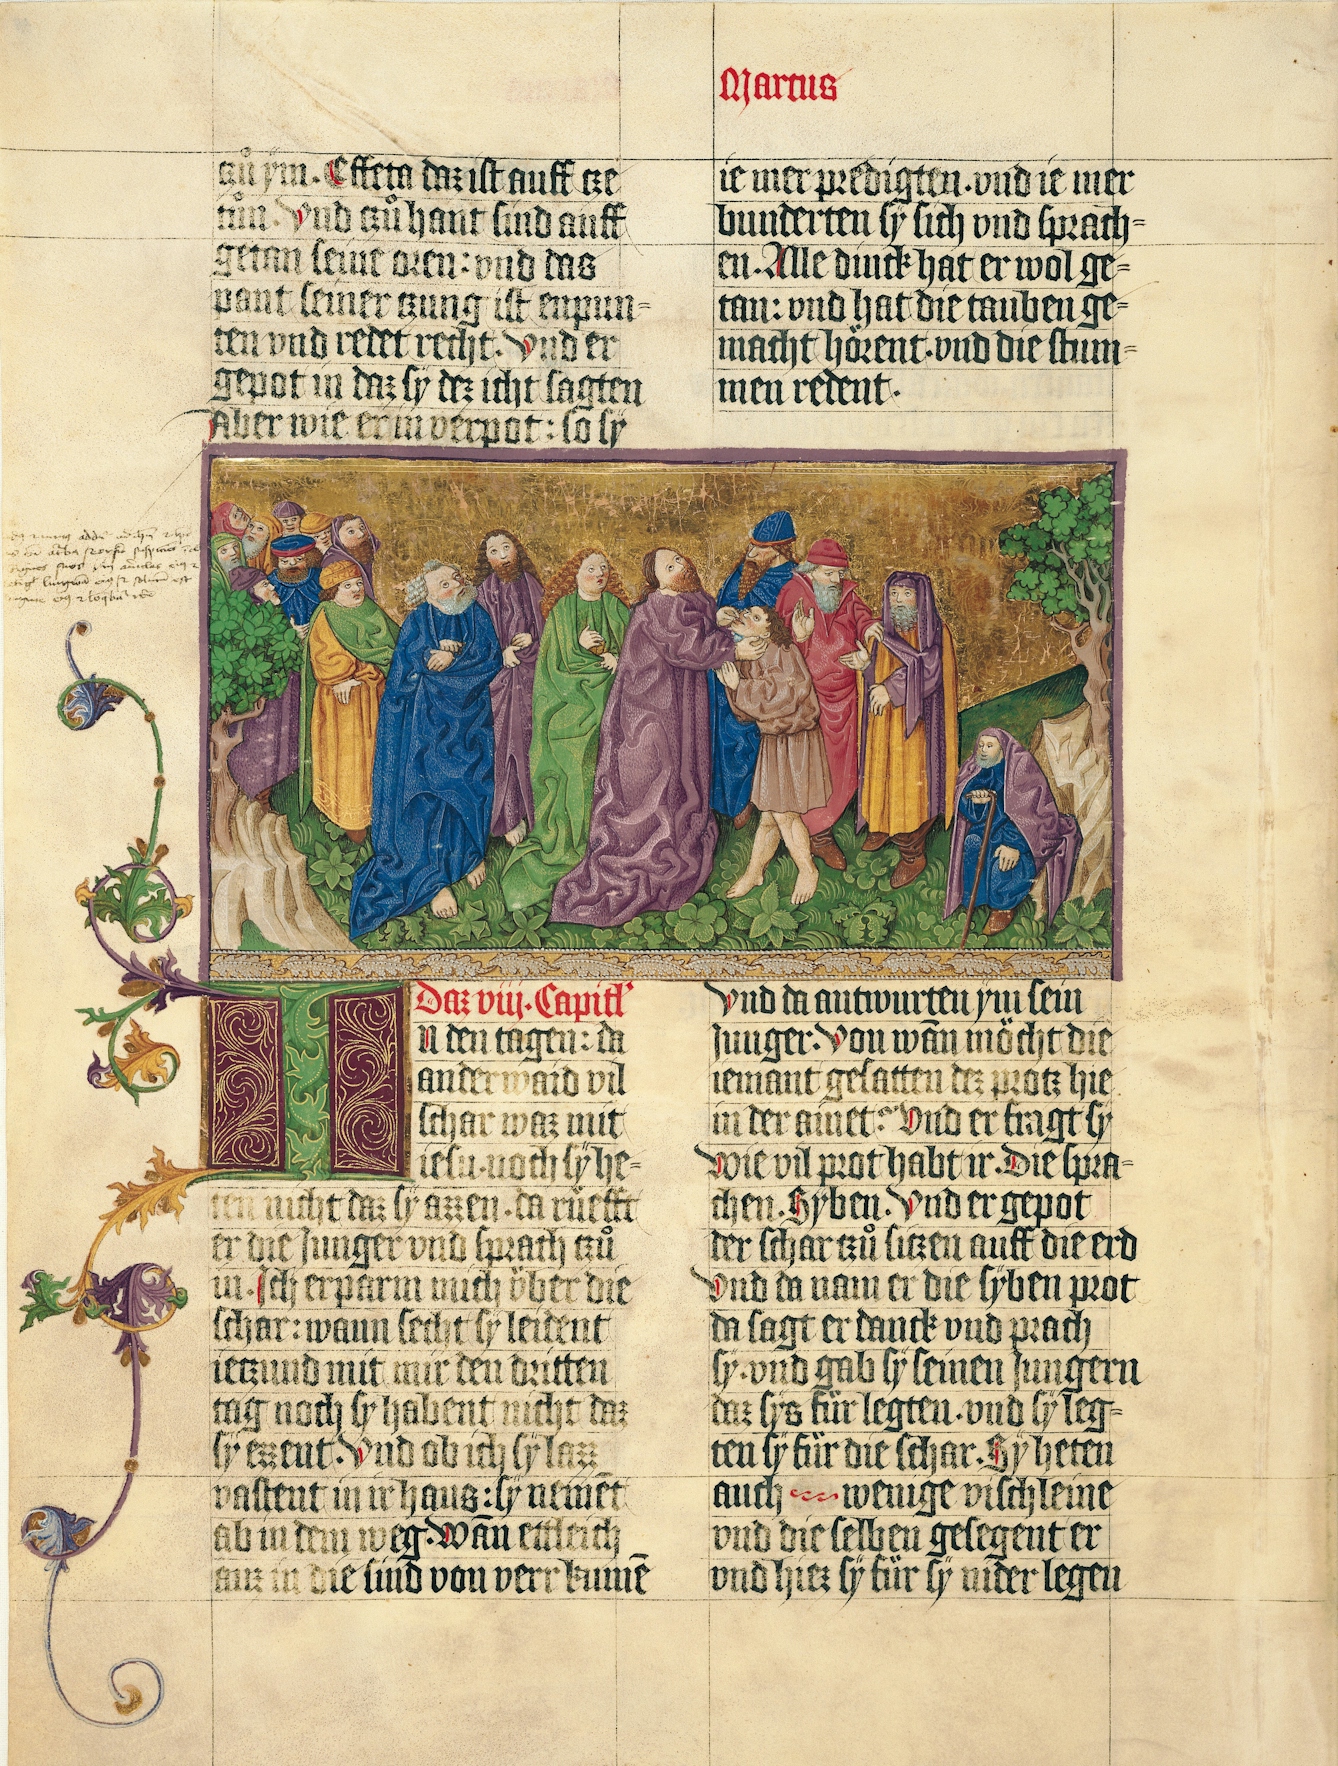 Marcus
tzů ÿm. Effeta daz ist auff tze
tůn. Vnd tzů hant sind auff
getan seine oren: vnd das
pant seiner tzung ist enpun=
ten vnd redet recht. Vnd er
gepot in daz sÿ dez icht sagten
Aber wie er in verpot: so sÿ
ie mer predigten. vnd ie mer
bunderten sÿ sich vnd sprach=
en. Alle dinck hat er wol ge=
tan: vnd hat die tauben ge=
macht hörent. vnd die stum=
men redent.
Daz viij. Capitl'
IN den tagen: da
anderwaid vil
schar waz mit
iesu. noch sÿ he=
ten nicht daz sÿ azzen. da rüefft
er die Junger vnd sprach tzů
in. Ich erparm mich über die
schar: wann secht sÿ leident
ietzund mit mir den dritten
tag noch sÿ habent nicht daz
sÿ ezzent. Vnd ob ich sÿ lazz
vastent in ir haus: sÿ nement̄
ab in dem weg. Wān ettleich
auz in die sind von verr kumē
Vnd da antwurten ÿm sein
Junger. Von wān möcht die
iemant gesatten dez protz hie
in der ainet? Vnd er fragt sÿ
Wie vil prot habt ir. Die spra=
chen. Sÿben. Vnd er gepot
der schar tzů sitzen auff die erd
Vnd da nam er die sÿben prot
da sagt er danck vnd prach
sÿ. vnd gab sÿ seinen Jungern
daz sÿs für legten. vnd sÿ leg=
ten sÿ für die schar. Sÿ heten
auch wenige vischleine
vnd die selben gesegent er
vnd hiez sÿ für sÿ nider legen